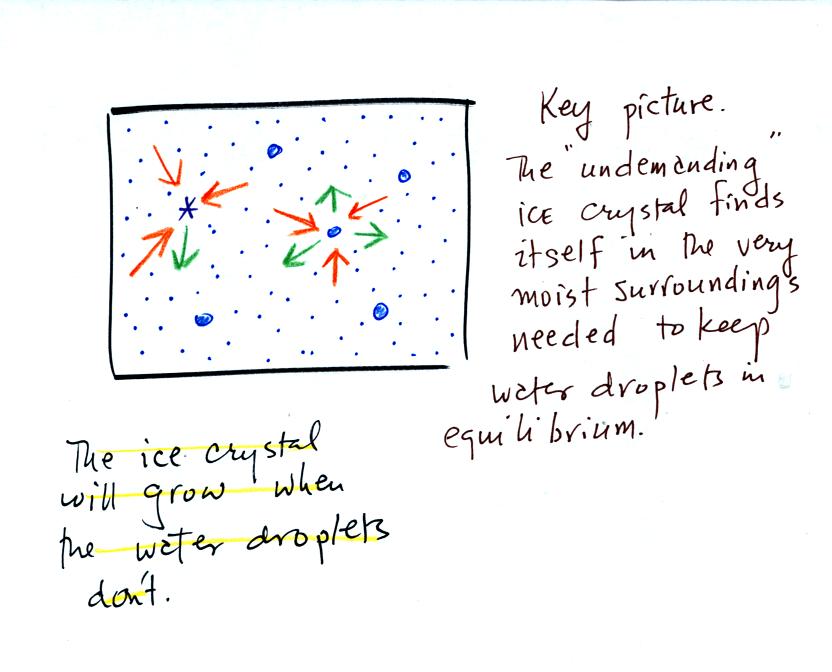 Key picture.
The "undemanding"
ice crystal finds
itself in the very
moist surroundings
needed to keep
water droplets in
equilibrium.
The ice crystal
will grow when
the water droplets
don't.